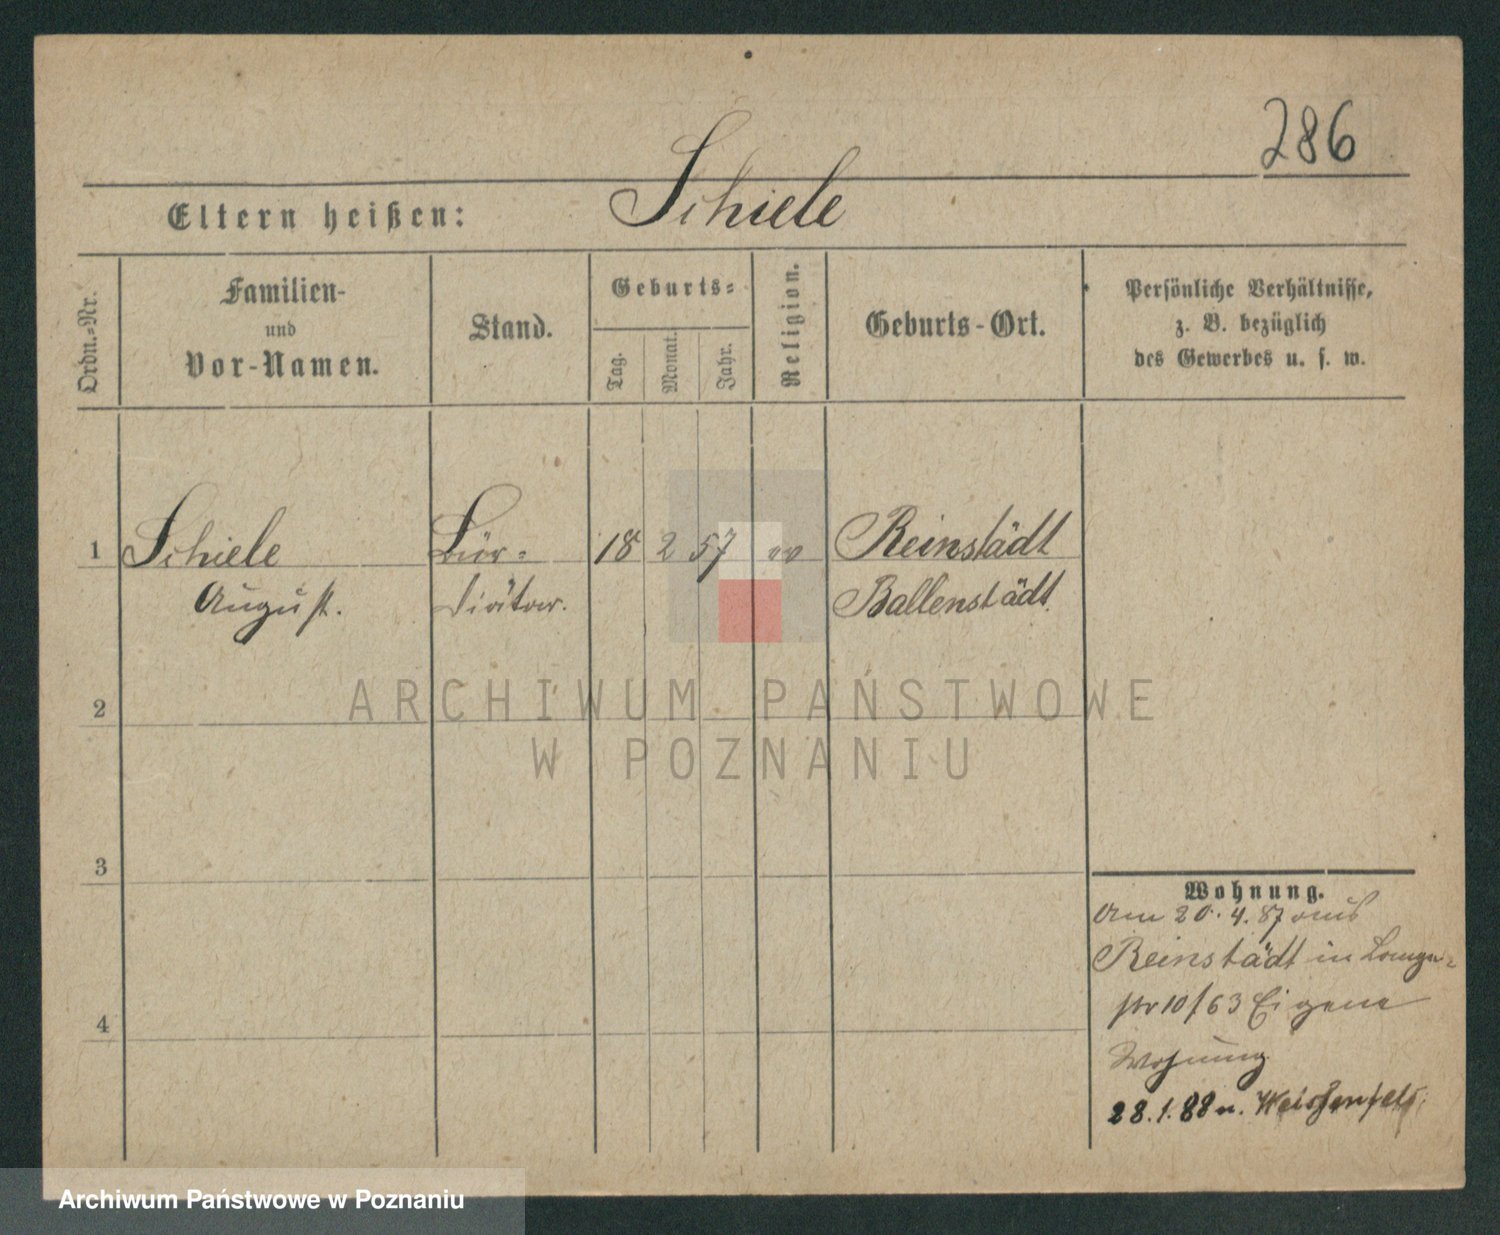 286
Eltern heißen: Schiele
Ordn.-Nr.
Familien-
und
Vor-Namen.
Stand.
Geburts-
Tag.
Monat.
Jahr.
Religion.
Geburts-Ort.
Persönliche Verhältnisse,
z. B. bezüglich
des Gewerbes u. s. w.
1 Schiele Bür- 18 2 57 ev Reinstädt
August. Diätar. Ballenstädt.
2
3
4
Wohnung.
Am 20.4.87 aus
Reinstädt in Lange-
str 10/63 Eigene
Wohnung
28.1.88 n. Weißenfels
ARCHIWUM PAŃSTWOWE
W POZNANIU
Archiwum Państwowe w Poznaniu